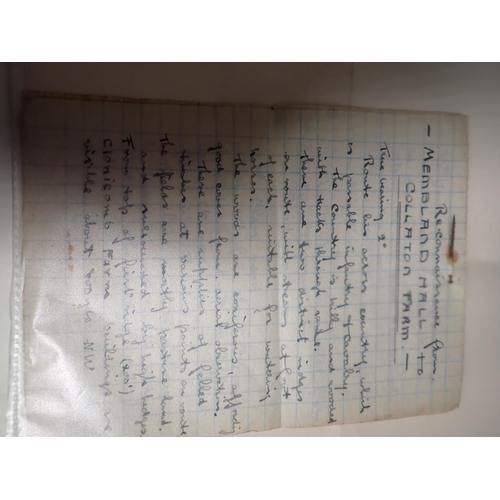 Reconnaissance from.
— MEMBLAND HALL to
COLLATON FARM. —
True bearing 2°
Route lies across country, which
is passable infantry & cavalry.
The Country is hilly and wooded
with tracks through same.
There are two distinct ridges
on route, with streams at foot
of each, suitable for watering
horses.
The woods are coniferous, affording
good cover from aerial observation.
There are supplies of felled
timber at various points on route
The fields are mostly pasture land.
and surrounded by high hedges
From top of first ridge (250')
Farm buildings are
visible about NW